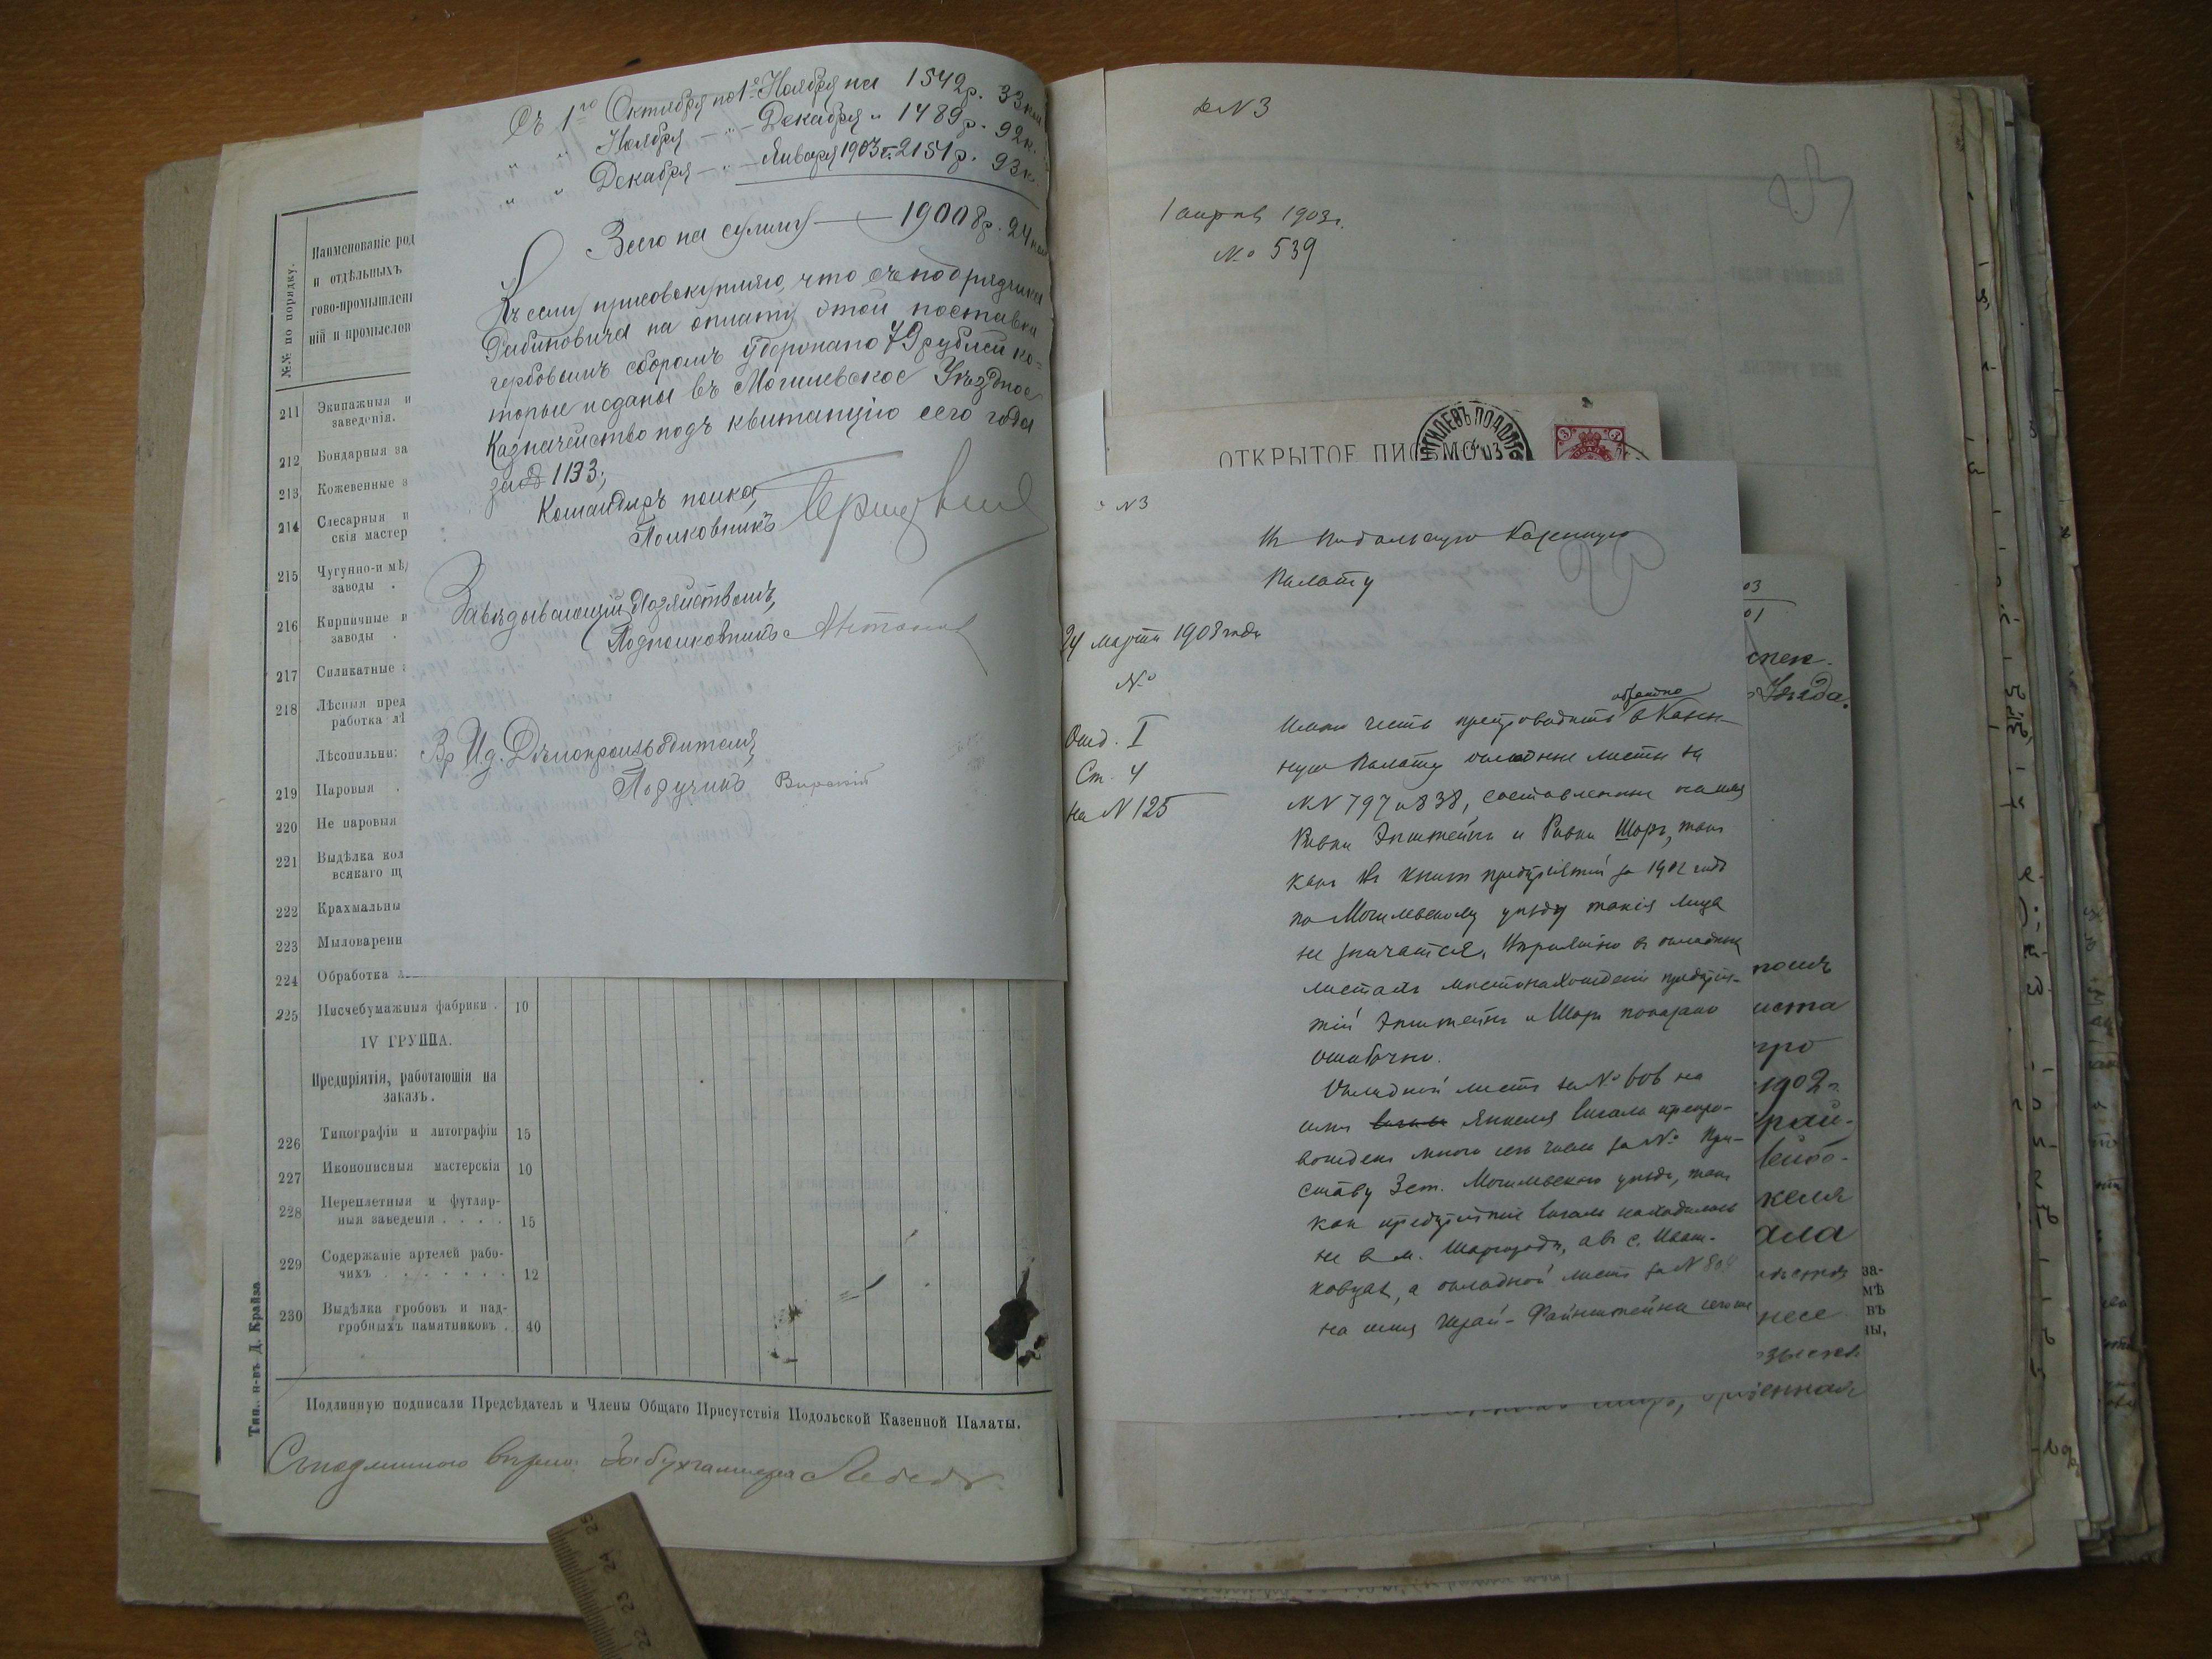 Съ 1го Октября по 1е Ноября на 1542р. 33коп
" " Ноября — " — Декабря " 1489р. 92к.
" " Декабря — " — Января 1903 г. 2151р. 93к.
Всего на сумму — 19008р. 24коп
Къ сему присовокупляю, что съ подрядчика
Рабиновича на оплату этой поставки
гербовымъ сборомъ удержано 79 рублей ко-
торые поданы въ Могилевское Уѣздное
Казначейство подъ квитанцію сего года
за № 1133;
Командиръ полка,
Полковникъ
Завѣдывающій Хозяйствомъ,
Подполковникъ Антонов
Вр И.д. Дѣлопроизводителя,
Поручикъ
№№ по порядку.
Наименованіе род
и отдѣльныхъ
гово-промышлен
ній и промыслов
211 Экипажныя и
заведенія.
212 Бондарныя за
213 Кожевенные з
214 Слесарныя и
скія мастер
215 Чугунно-и мѣд
заводы .
216 Кирпичные и
заводы .
217 Силикатные з
218 Лѣсныя пред
работка лѣ
Лѣсопильни:
219 Паровыя .
220 Не паровыя
221 Выдѣлка кол
всякаго щ
222 Крахмальны
223 Мыловаренн
224 Обработка
225 Писчебумажныя фабрики . 10
IV ГРУППА.
Предпріятія, работающія на
заказъ.
226 Типографіи и литографіи 15
227 Иконописныя мастерскія 10
228 Переплетныя и футляр-
ныя заведенія . . . . 15
229 Содержаніе артелей рабо-
чихъ . . . . . . . 12
230 Выдѣлка гробовъ и над-
гробныхъ памятниковъ . 40
Тип. н-въ Д. Крайза
Подлинную подписали Предсѣдатель и Члены Общаго Присутствія Подольской Казенной Палаты.
Съ подлиннымъ вѣрно: За бухгалтера
№3
1 апрѣля 1903г.
№ 539
ОТКРЫТОЕ ПИСЬМО
МОГИЛЕВЪ ПОДОЛ
03
3
№3
Въ Подольскую Казенную
Палату
24 марта 1903 года
№
Отд. I
Ст. 4
на № 125
Имѣю честь препроводить обратно в Казен-
ную Палату окладные листы за
№№ 797 и 838, составленные на имя
Ривки Эпштейнъ и Ривки Шоръ, такъ
какъ въ книгѣ предпріятій за 1902 годъ
по Могилевскому уѣзду такія лица
не значатся. Вѣроятно в окладныхъ
листахъ мѣстонахожденіе предпрія-
тій Эпштейнъ и Шоръ показано
ошибочно.
Окладной листъ за № 606 на
имя Янкеля препро-
вожденъ мною сего числа за № При-
ставу 3 ст. Могилевского уѣзда, такъ
какъ предпріятіе находилось
не в м. Шаргородѣ, а въ с. Иваш-
ковцахъ, а окладной листъ за №
на имя Файнштейна
03
01
спек.
Уѣзда.
иста
1902г.
край-
лейбо-
келя
ала
несе
енная
за-
мѣ
въ
ны,